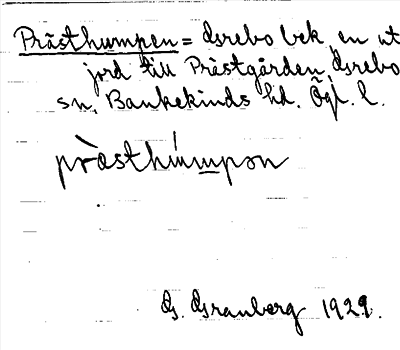 Prästhumpen = Gsrebo bek, en ut
jord till Prästgården, Gsrebo
sn, Bankekinds hd. Ögl. l.
pràsthúmpən
G. Granberg 1929.